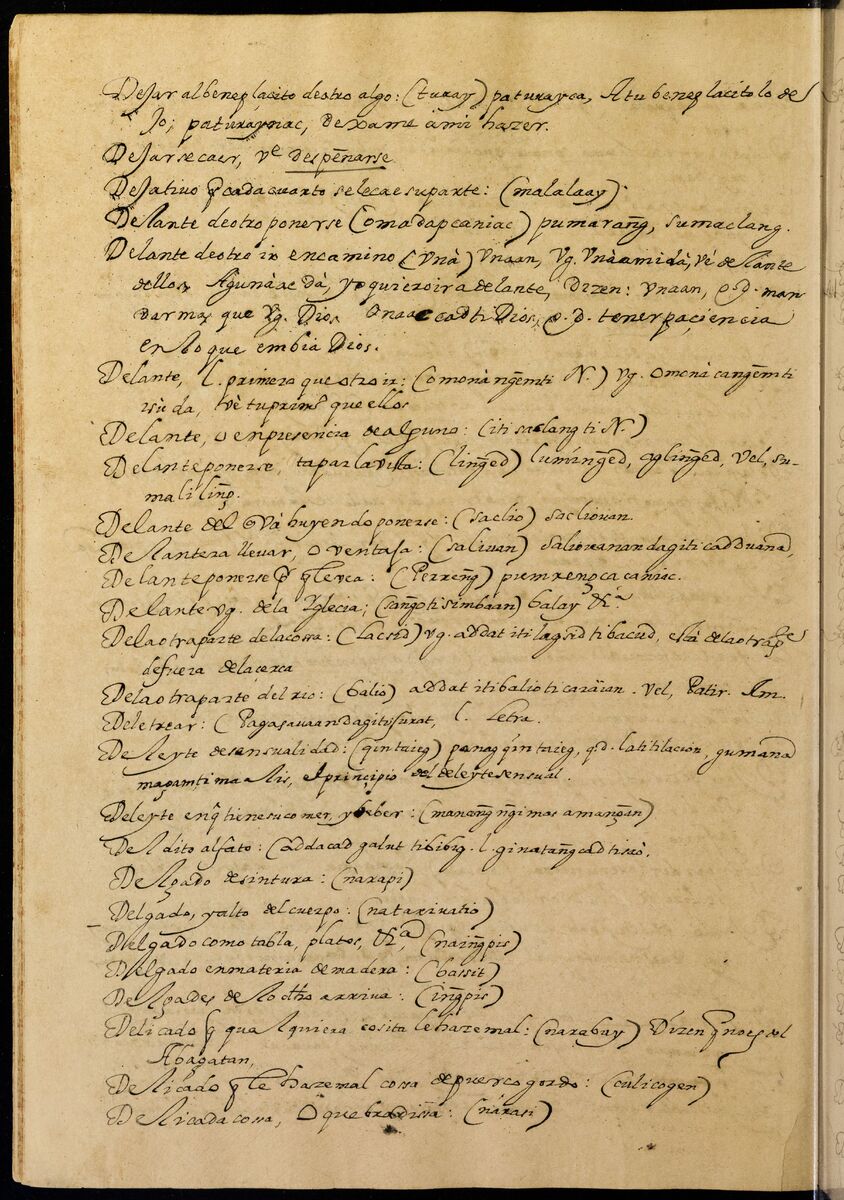 Dejar al beneplacito de otro algo: (turay) paturayca, A tu beneplacito lo de
jo; paturaynac, Dexame a mi hazer.
Dejarse caer, ve despeñarse
Dejativo q cada cuarto se le cae su parte: (malalaay)
Delante de otro ponerse (omadapcaniac) pumarang̃, sumaclang.
Delante de otro ir en camino (Vnà) Vnaan, Vg. Vnàamida, vé delante
dellos Agunàac dà, yo quiero ir a delante, Dizen: Vnaan, q.d. man
dar mas que Vg. Dios. Onaac cadti Dios, q.d. tener paciencia
en lo que embia Dios.
Delante, l. primero que otro ir: (omonà ng̃emti N.) Vg. Omonà cang̃emti
isùda, vè tu primº que ellos
Delante, o en presencia de alguno: (iti saclang ti N.)
Delante ponerse, tapar la vista: (ling̃ed) luming̃ed, agling̃ed, Vel, su-
malilin̄g.
Delante del q̃ Và huyendo ponerse: (saclio) sacliouan.
Delantera llevar, o ventaja: (saliuan) saliouanandagiti cadduana,
Delante ponerse q̃ le vea: (Perreng̃) pumrenoca caniac.
Delante vg. de la Yglecia; (sang̃o ti simbaan) balay, &ª
De la otra parte de la cossa: (lacsid) vg. addat iti lagsid ti bacud, està de la otra pte
de fuera de la cerca
De la otra parte del rio: (balio) addat iti balio ti caràian. Vel, Patir. Im.
Deletrear: (Pagasauaandagitisurat, l. Letra.
Deleyte de sensualidad: (quintaieg) panagquintaieg, q.d. la titilacion, gumana
magamtimaalis, el principio del deleyte sensual.
Deleyte en q̃ tiene su comer, y beber: (manang̃ng̃imas amang̃an)
Delito al fato: (addacad galut ti bibig. l. ginatang̃cad tisaò,
Delgado de sintura: (narapi)
Delgado, y alto del cuerpo: (natarivatio)
Delgado como tabla, platos, &ª, (naing̃pis)
Delgado en materia de madera: (bassit)
Delgades de lo dho arriva: (ing̃pis)
Delicado q̃ qualquiera cosita le haze mal: (narabuy) Dizen q̃ no es del
Abagatan,
Delicado q̃ le haze mal cossa de puerco gordo: (culicogen)
Delicada cossa, O quebradissa: (nàrasi)